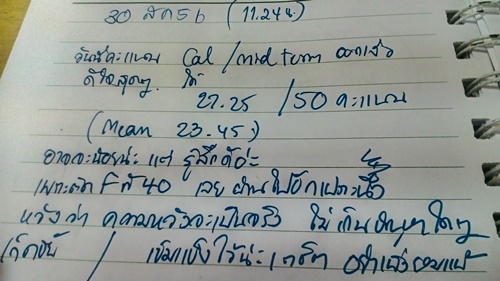 30 สค 56 (11.24น.
วันนี้คะแนน Cal / midterm ออกแล้ว
ดีใจสุดๆ ได้
27.25 / 50 คะแนน
(Mean 23.45)
อาจจะน้อยน่ะ แต่ รู้สึกดีอ่ะ
เพราะตัด F ที่ 40 เลย ผ่านไปอีกเปราะนึง
หวังว่า ความหวังจะเป็นจริง ไม่เกินปัญหาใดๆ
เกิดขึ้น / เข้มแข็งไว้น่ะ